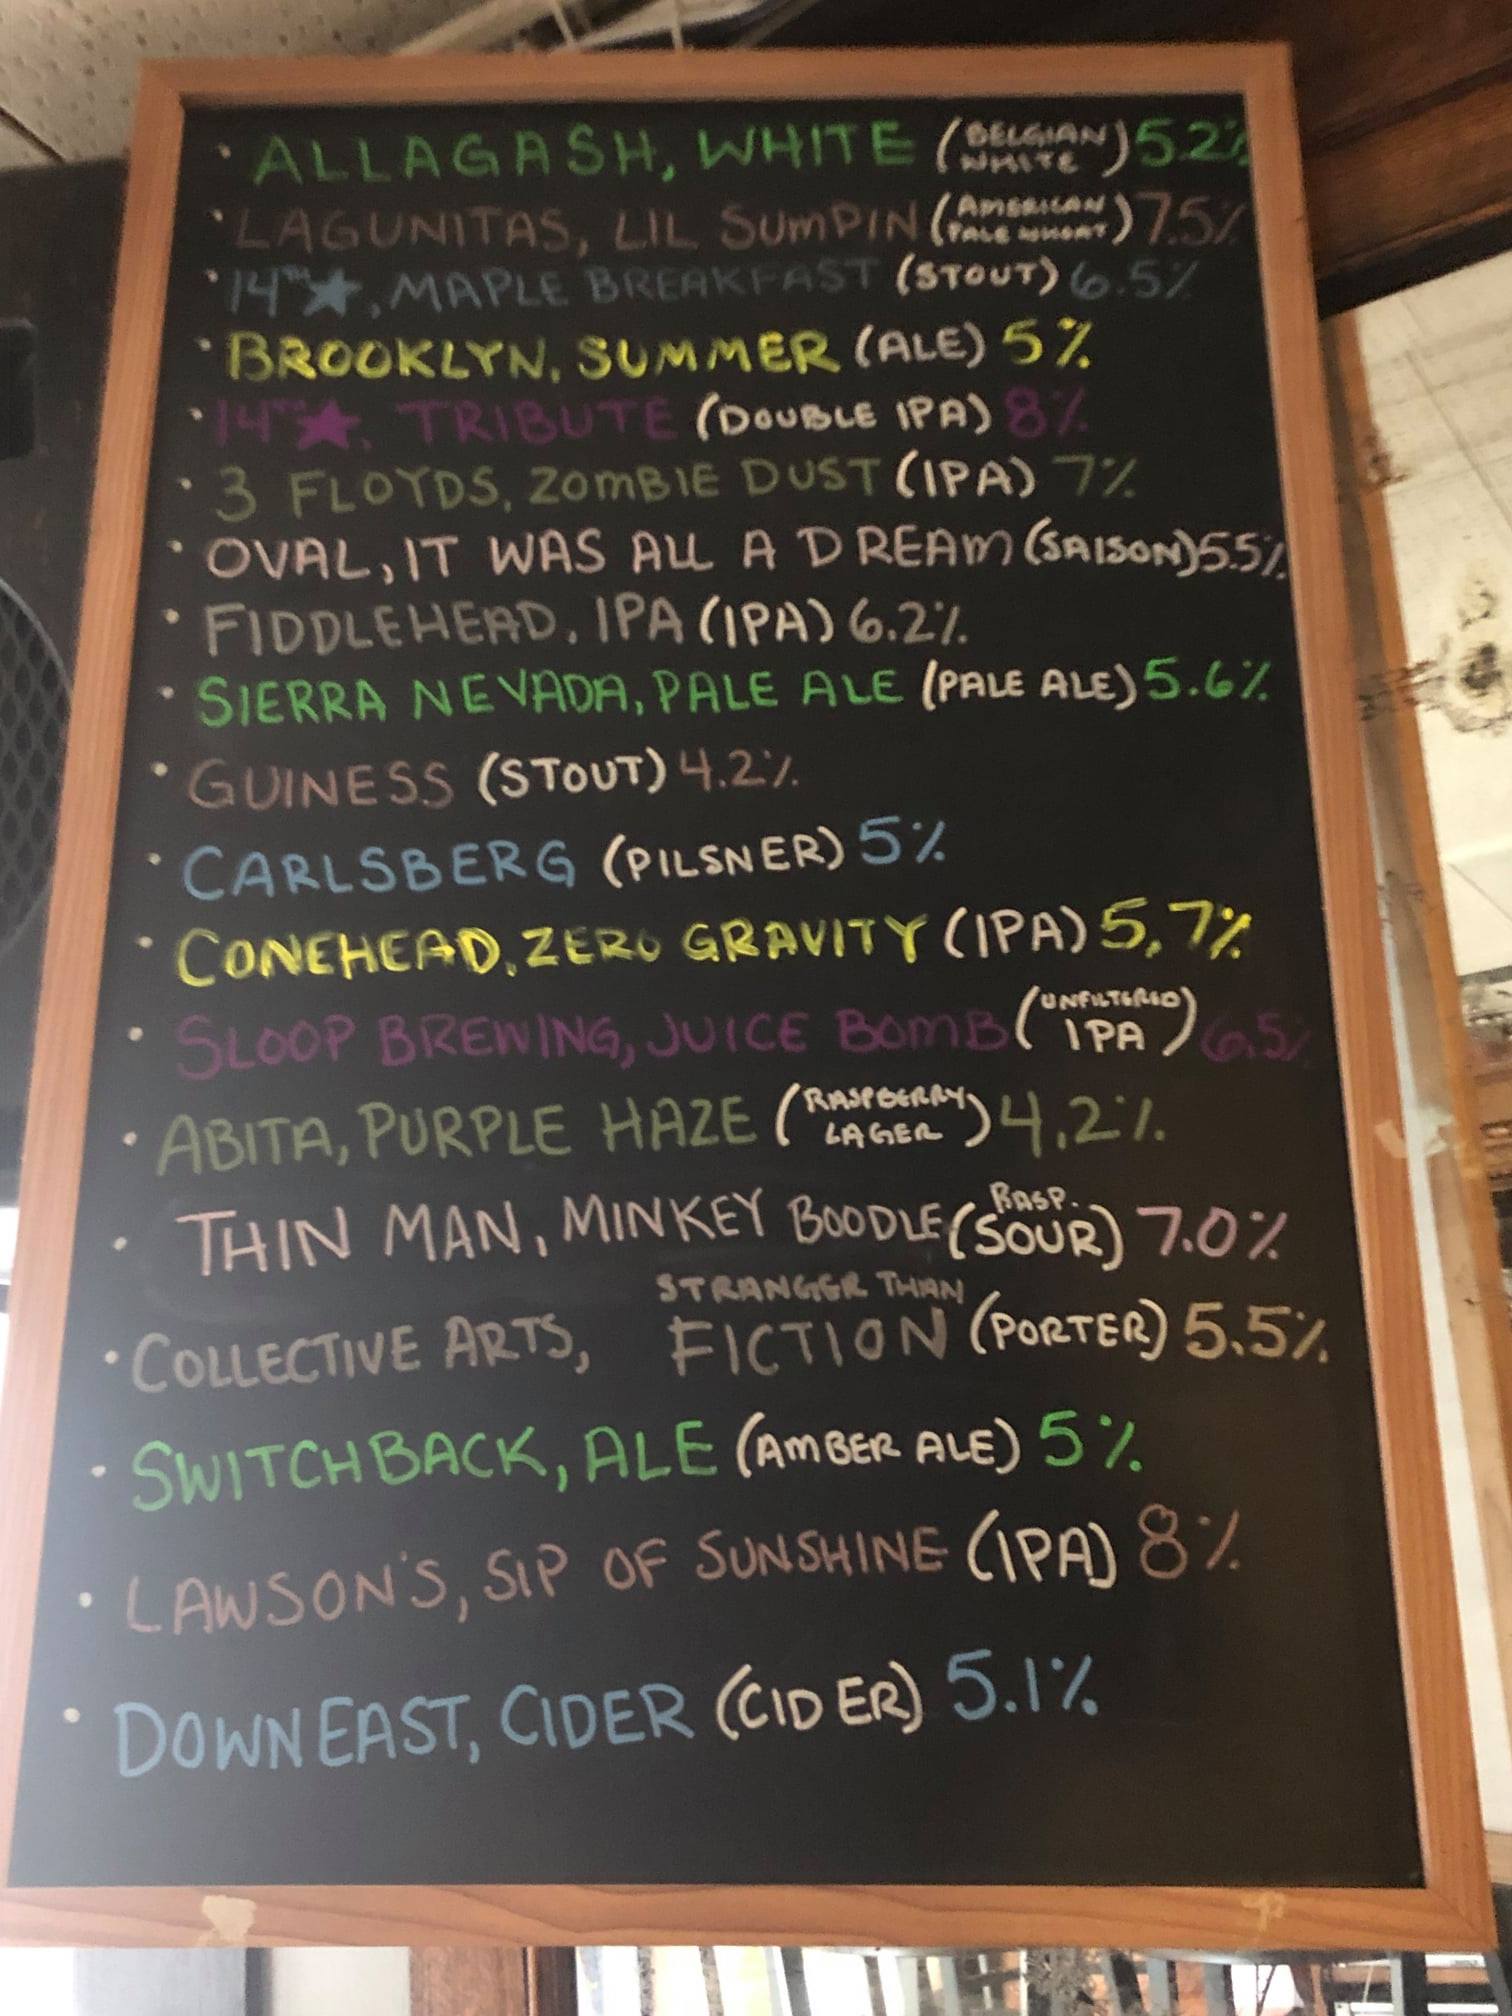 · ALLAGASH, WHITE (BELGIAN WHITE) 5.2%
· LAGUNITAS, LIL SUMPIN (AMERICAN PALE WHEAT) 7.5%
· 14TH ★, MAPLE BREAKFAST (STOUT) 6.5%
· BROOKLYN, SUMMER (ALE) 5%
· 14TH ★, TRIBUTE (DOUBLE IPA) 8%
· 3 FLOYDS, ZOMBIE DUST (IPA) 7%
· OVAL, IT WAS ALL A DREAM (SAISON) 5.5%
· FIDDLEHEAD, IPA (IPA) 6.2%
· SIERRA NEVADA, PALE ALE (PALE ALE) 5.6%
· GUINESS (STOUT) 4.2%
· CARLSBERG (PILSNER) 5%
· CONEHEAD, ZERO GRAVITY (IPA) 5,7%
· SLOOP BREWING, JUICE BOMB (UNFILTERED IPA) 6.5%
· ABITA, PURPLE HAZE (RASPBERRY LAGER) 4.2%
· THIN MAN, MINKEY BOODLE (RASP. SOUR) 7.0%
· COLLECTIVE ARTS, STRANGER THAN FICTION (PORTER) 5.5%
· SWITCHBACK, ALE (AMBER ALE) 5%
· LAWSON'S, SIP OF SUNSHINE (IPA) 8%
· DOWNEAST, CIDER (CIDER) 5.1%